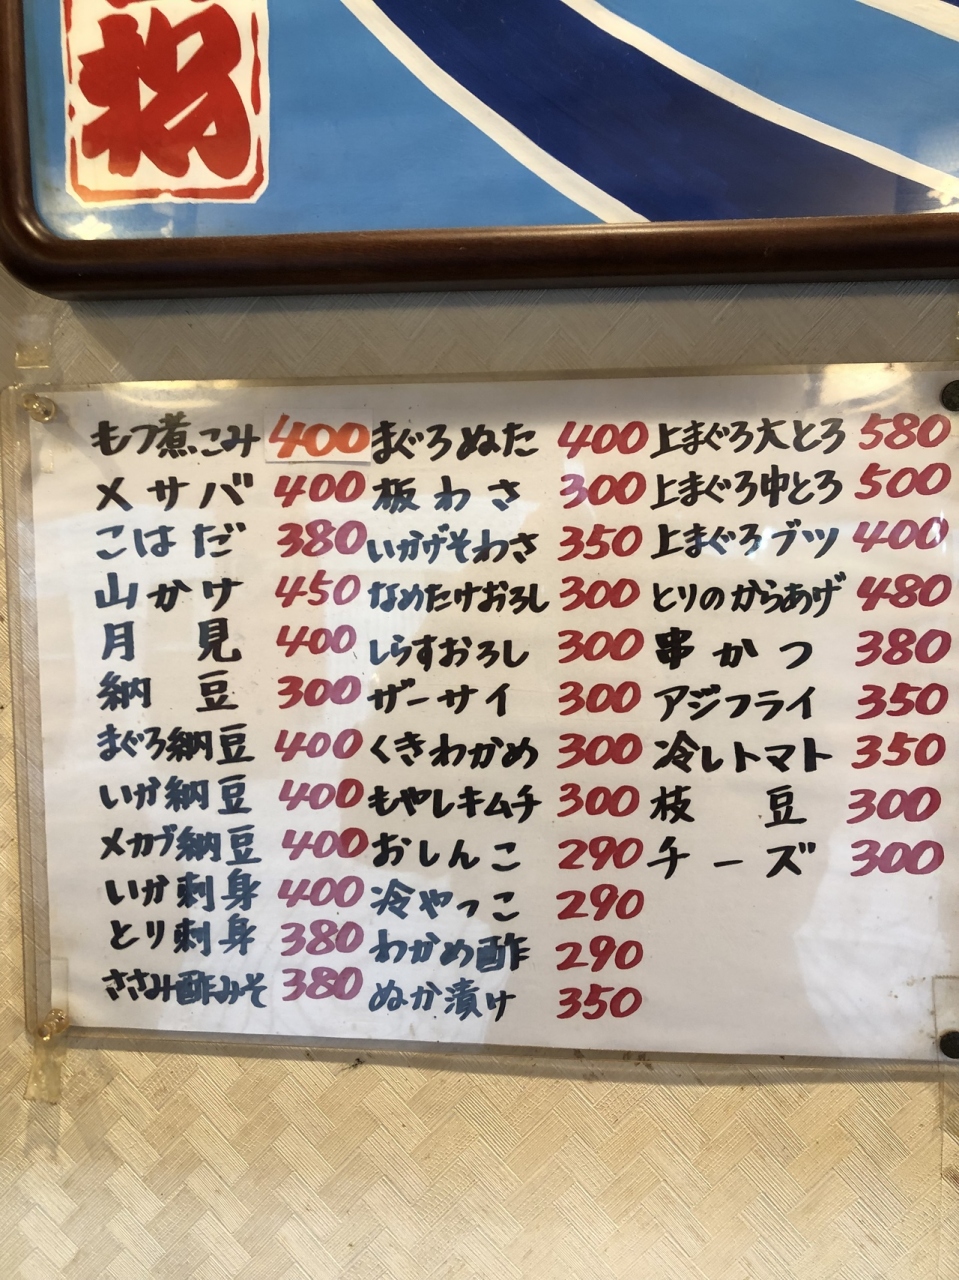 祝
もつ煮こみ 400
メサバ 400
こはだ 380
山かけ 450
月見 400
納豆 300
まぐろ納豆 400
いか納豆 400
メカブ納豆 400
いか刺身 400
とり刺身 380
ささみ酢みそ 380
まぐろぬた 400
板わさ 300
いかげそわさ 350
なめたけおろし 300
しらすおろし 300
ザーサイ 300
くきわかめ 300
もやしキムチ 300
おしんこ 290
冷やっこ 290
わかめ酢 290
ぬか漬け 350
上まぐろ大とろ 580
上まぐろ中とろ 500
上まぐろブツ 400
とりのからあげ 480
串かつ 380
アジフライ 350
冷しトマト 350
枝豆 300
チーズ 300